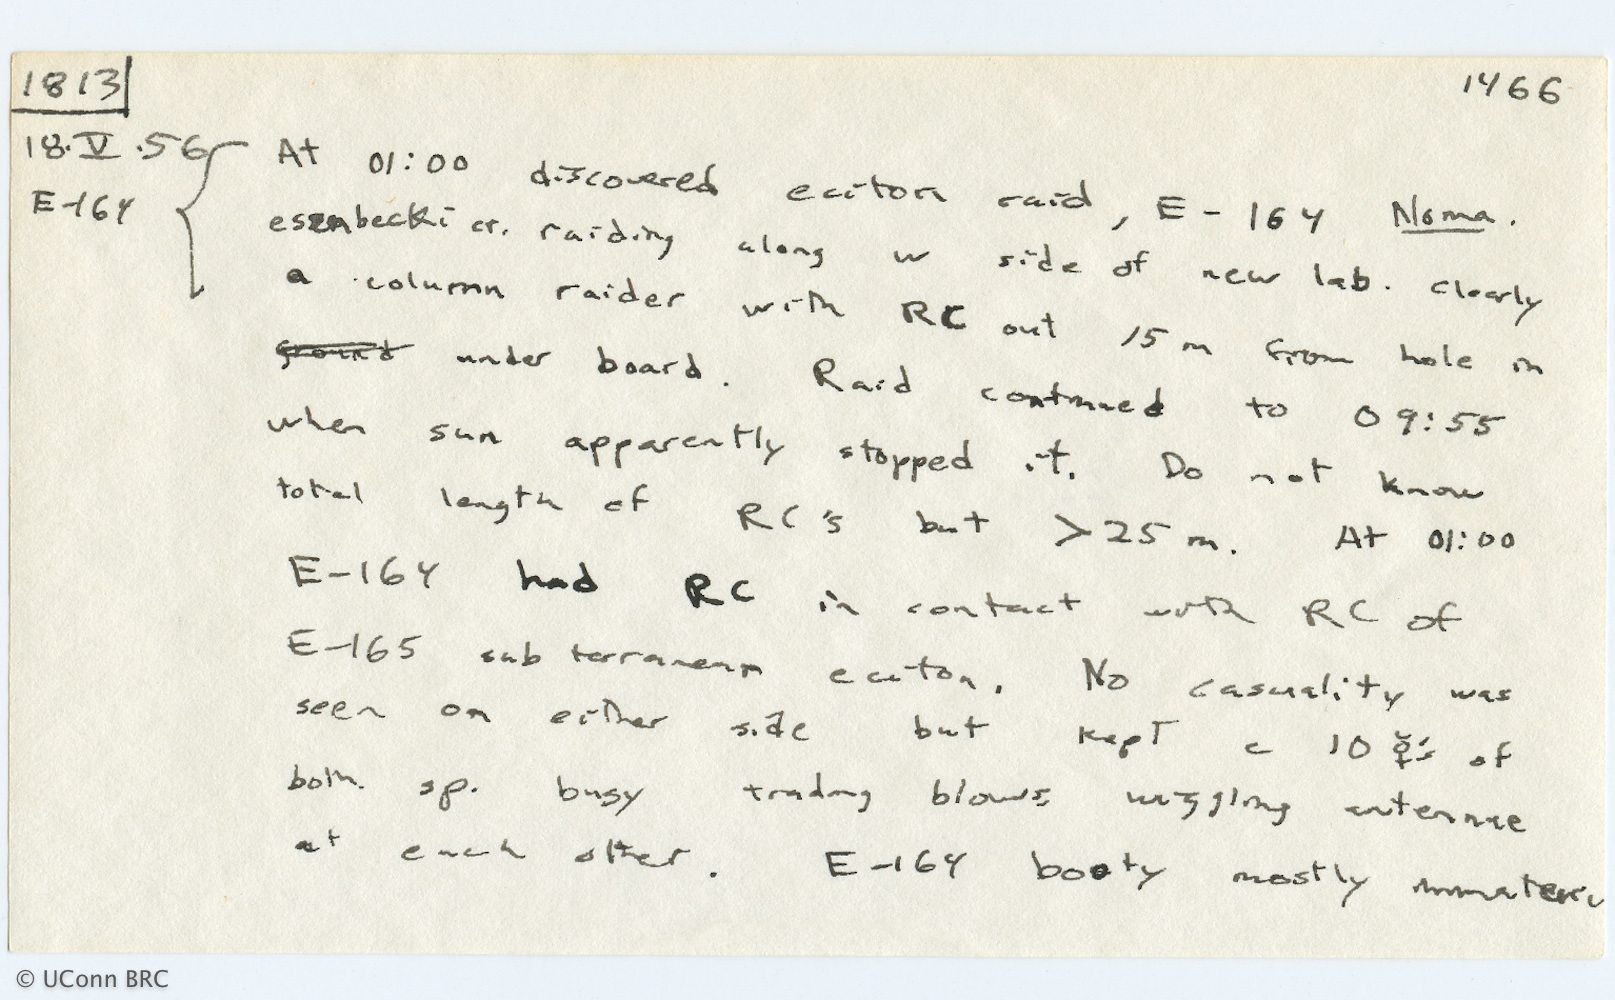 1813
1466
18.V.56
E-164
At 01:00 discovered eciton raid, E-164 Noma.
esenbecki cr. raiding along w side of new lab. clearly
a column raider with RC out 15 m from hole in
ground under board. Raid continued to 09:55
when sun apparently stopped it. Do not know
total length of RC's but >25 m. At 01:00
E-164 had RC in contact with RC of
E-165 subterranean eciton. No casuality was
seen on either side but kept c 10 ☿'s of
both sp. busy trading blows wiggling antennae
at each other. E-164 booty mostly
© UConn BRC